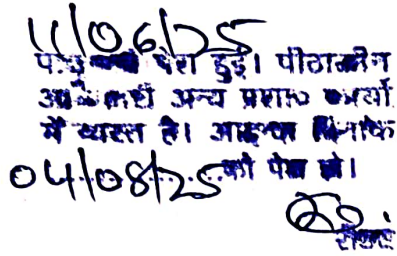 11/06/25
पत्रावली पेश हुई। पीठासीन
अधिकारी अन्य प्रशा० कार्यो
में व्यस्त है। आइन्दा दिनांक
04/08/25 ......को पेश हो।
रीडर